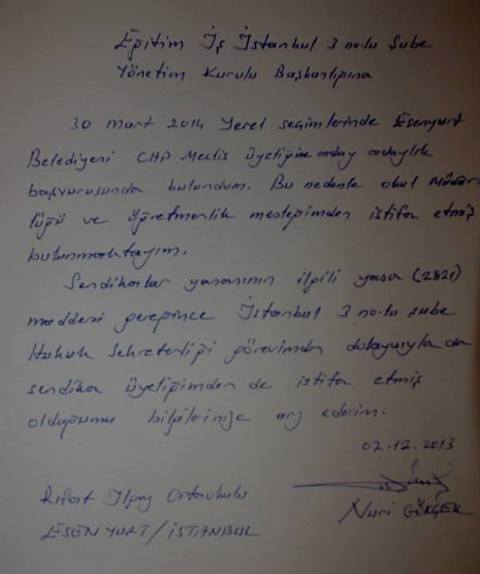 Eğitim İş İstanbul 3 no.lu Şube
Yönetim Kurulu Başkanlığına
30 Mart 2014 Yerel seçimlerinde Esenyurt
Belediyesi CHP Meclis üyeliğine aday adaylık
başvurusunda bulundum. Bu nedenle okul Müdür
lüğü ve öğretmenlik mesleğimden istifa etmiş
bulunmaktayım.
Sendikalar yasasının ilgili yasa (2821)
maddesi gereğince İstanbul 3 no.lu şube
Hukuk Sekreterliği görevimden dolayısıyla da
sendika üyeliğimden de istifa etmiş
olduğumu bilgilerinize arz ederim.
02.12.2013
Rıfat Ilgaz Ortaokulu
Nuri GÖKÇEK
ESENYURT/İSTANBUL